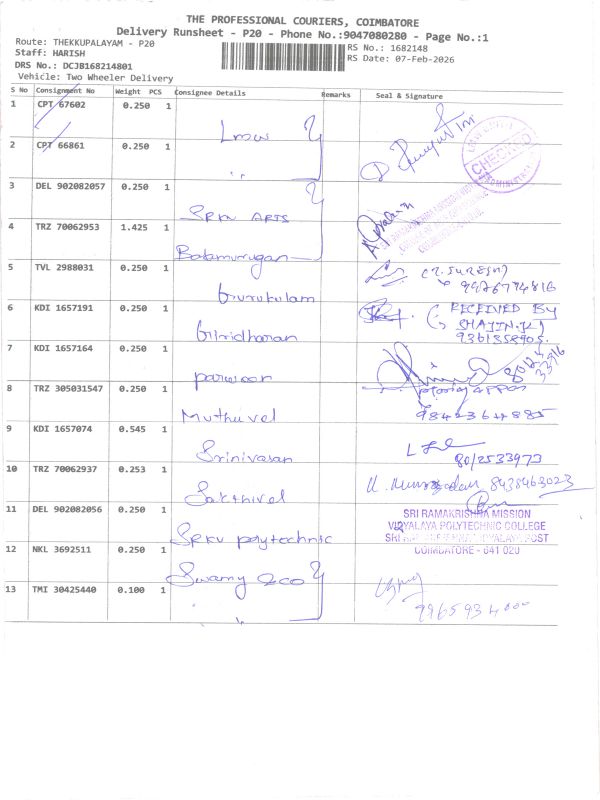 THE PROFESSIONAL COURIERS, COIMBATORE
Delivery Runsheet - P20 - Phone No.:9047080280 - Page No.:1
Route: THEKKUPALAYAM - P20
RS No.: 1682148
Staff: HARISH
RS Date: 07-Feb-2026
DRS No.: DCJB168214801
Vehicle: Two Wheeler Delivery
S No Consignment No Weight PCS Consignee Details Remarks Seal & Signature
1 CPT 67602 0.250 1
2 CPT 66861 0.250 1
CHECKED
3 DEL 902082057 0.250 1
SRKV ARTS
4 TRZ 70062953 1.425 1
Balamurugan
5 TVL 2988031 0.250 1
Gurukulam
(T. SURESH)
9976774816
6 KDI 1657191 0.250 1
Giridharan
(RECEIVED BY
SHAJIN.K)
9361358905.
7 KDI 1657164 0.250 1
8 TRZ 305031547 0.250 1
Muthuvel
9842364885
9 KDI 1657074 0.545 1
Srinivasan
8012533973
10 TRZ 70062937 0.253 1
Sakthivel
8438463023
11 DEL 902082056 0.250 1
SRKV polytechnic
SRI RAMAKRISHNA MISSION
VIDYALAYA POLYTECHNIC COLLEGE
COIMBATORE - 641 020
12 NKL 3692511 0.250 1
Swamy
13 TMI 30425440 0.100 1